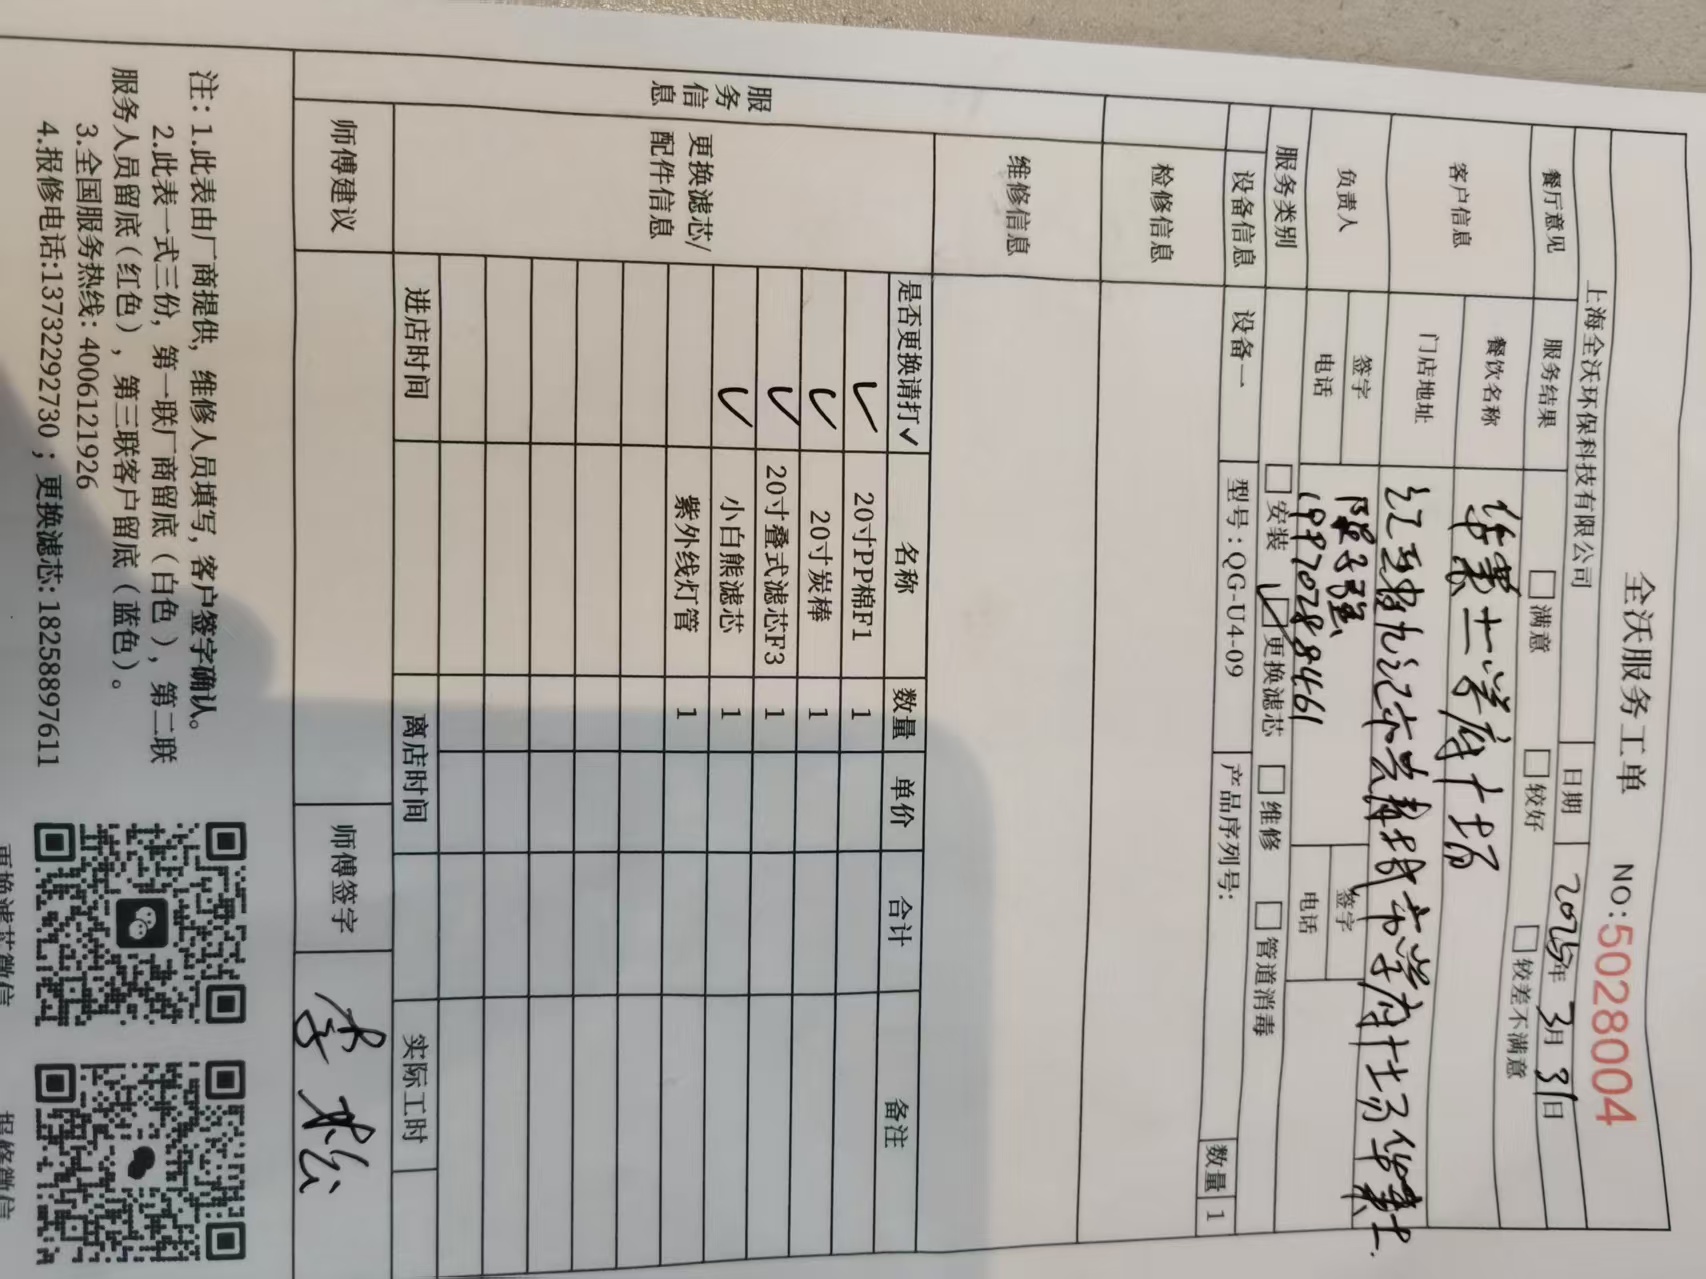 全沃服务工单 NO:5028004
上海全沃环保科技有限公司 日期 2025年3月31日
餐厅意见 服务结果 □满意 □较好 □较差不满意
客户信息 餐饮名称 华莱士学府广场
门店地址 江西省九江市共青城市学府广场华莱士
负责人 签字 签字
电话 19970288461 电话
服务类别 □安装 ☑更换滤芯 □维修 □管道消毒
设备信息 设备一 型号:QG-U4-09 产品序列号: 数量 1
检修信息
维修信息
服务信息
更换滤芯/配件信息
是否更换请打✓ 名称 数量 单价 合计 备注
✓ 20寸PP棉F1 1
✓ 20寸炭棒 1
✓ 20寸叠式滤芯F3 1
✓ 小白熊滤芯 1
紫外线灯管 1
进店时间 离店时间 实际工时
师傅建议 师傅签字 李松
注: 1.此表由厂商提供, 维修人员填写, 客户签字确认。
2.此表一式三份, 第一联厂商留底(白色), 第二联
服务人员留底(红色), 第三联客户留底(蓝色)。
3.全国服务热线: 4006121926
4.报修电话:13732292730 ; 更换滤芯: 18258897611
更换滤芯微信 报修微信